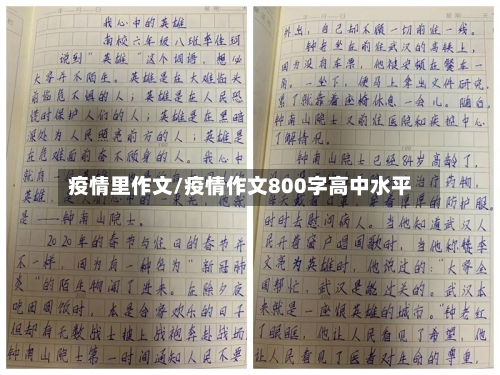 我心中的英雄
南校六年级八班李佳珂
说到"英雄"这个词语,想必
大家并不陌生。英雄是在大难临头
前临危不惧的人;英雄是在人民恐
慌时保护人们的人;英雄是在黑暗
深处为人民照亮前方的人;英雄是
在危难面前奋不顾身的人。我心中
就是
是——钟南山院士。
2020年的春节与往日的春节并
不一样,因为有一种名为"新冠肺
炎"的陌生物闯了进来。在除夕夜
吃团圆饭时,本是合家欢乐的日子
但却有无数战士披上战袍奔赴战场
钟南山院士第一时间通知人民不要
外出,自己却不顾一切前往一线。
钟老坐在前往武汉的高铁上,
因为没有车票,他被安顿在餐车一
角。一坐下,便马上拿出文件研究,
累了就靠着座椅休息一会儿。随后,
钟南山院士又前往医院和疾控中心
了解情况。
钟南山院士已经84岁高龄了,
治疗药物,
防护服。
时时去慰问病人。当他知道武汉人
民开着窗户唱国歌时,当他称赞李
文亮为英雄时,他说过的:"大家全
国帮忙,武汉是能过关的。武汉本
来就是一座很英雄的城市。"钟老红
了眼眶,他让人民看见了希望,他
让人民看见了医者对生命的尊重,
疫情里作文/疫情作文800字高中水平